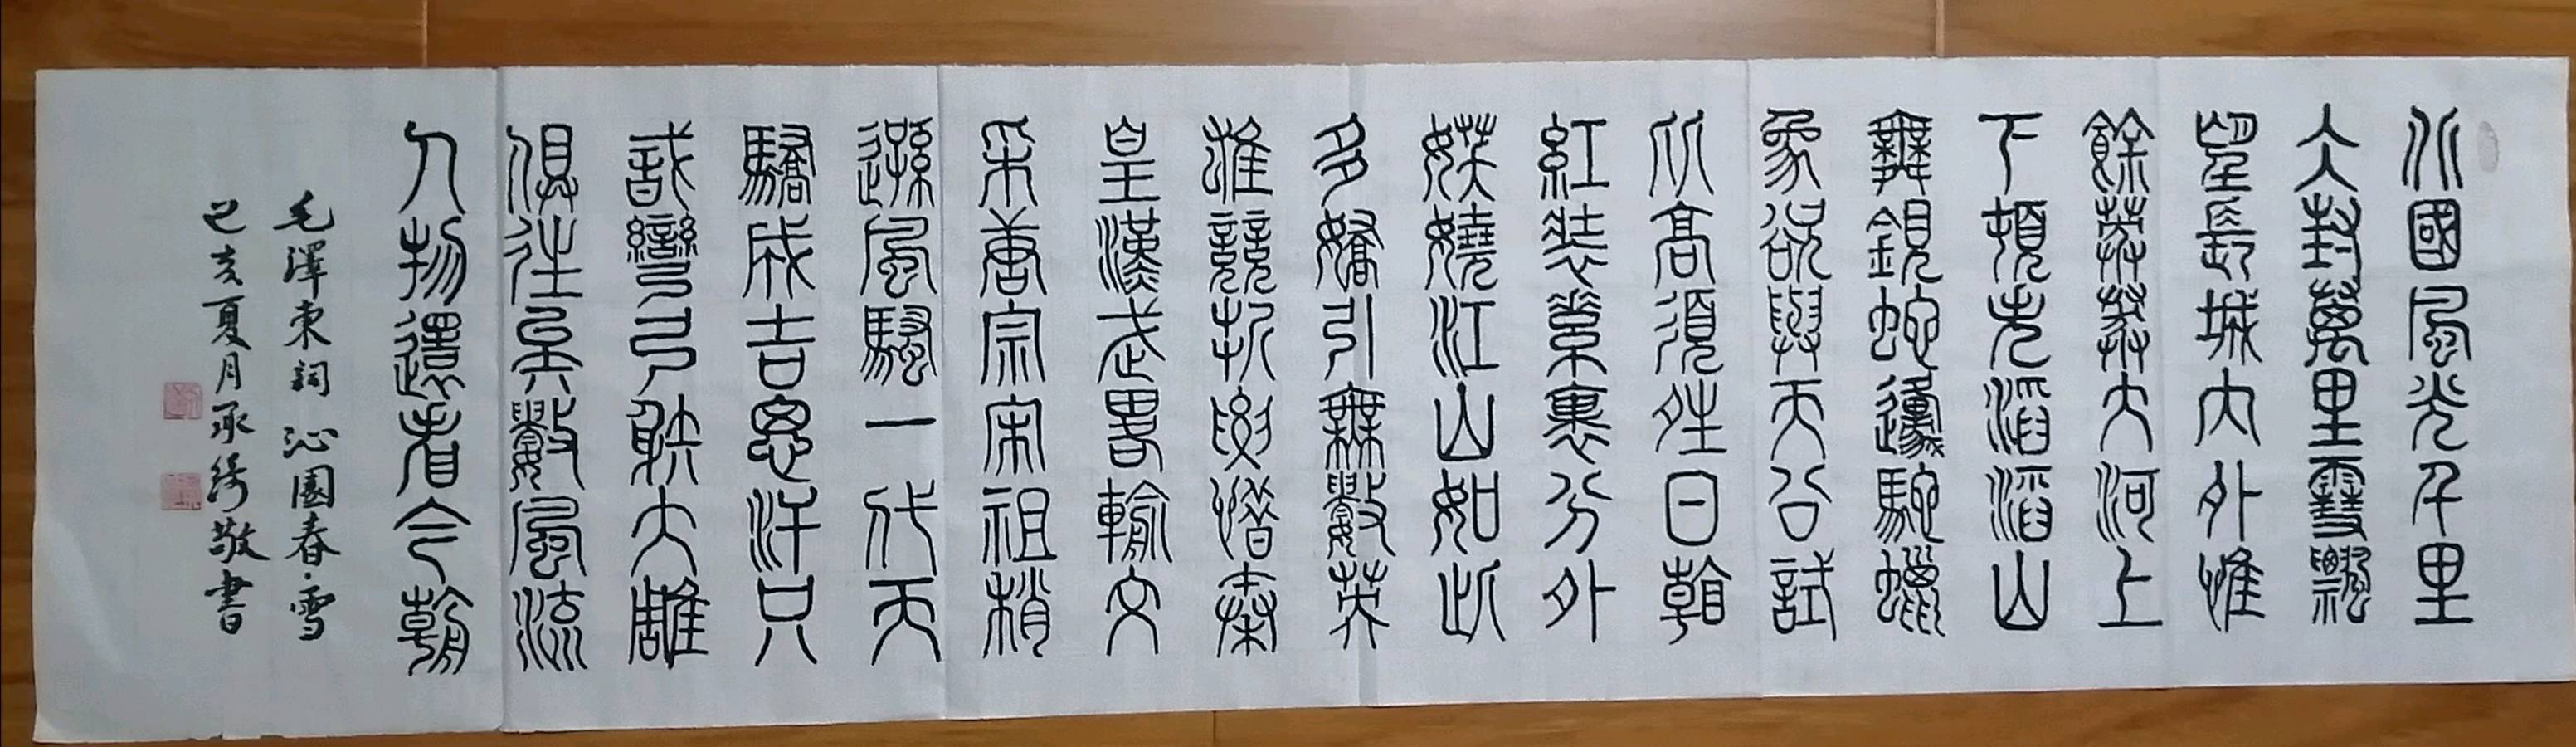 北國風光千里
冰封萬里雪飄
望長城內外惟
餘莽莽大河上
下頓失滔滔山
舞銀蛇原馳蠟
象欲與天公試
比高須晴日看
紅裝素裹分外
妖嬈江山如此
多嬌引無數英
雄競折腰惜秦
皇漢武畧輸文
采唐宗宋祖稍
遜風騷一代天
驕成吉思汗只
識彎弓射大雕
俱往矣數風流
人物還看今朝
毛澤東詞沁園春·雪
己亥夏月承綺敬書